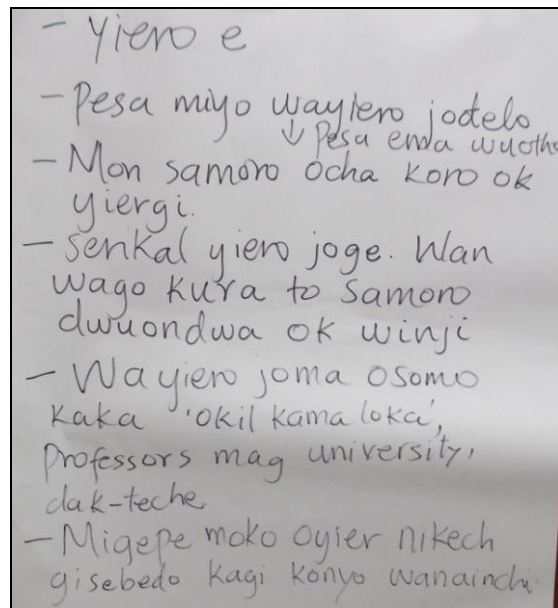 - Yiero e
- Pesa miyo wayiero jodelo
↓ Pesa ema wuotho
- Mon samoro ocha koro ok
yiergi.
- Senkal yiero joge. Wan
wago kura to samoro
dwuondwa ok winji
- Wayiero joma osomo
kaka 'okil kama loka',
Professors mag university,
dak-teche
- Migepe moko oyier nikech
gisebedo kagi konyo wanainchi